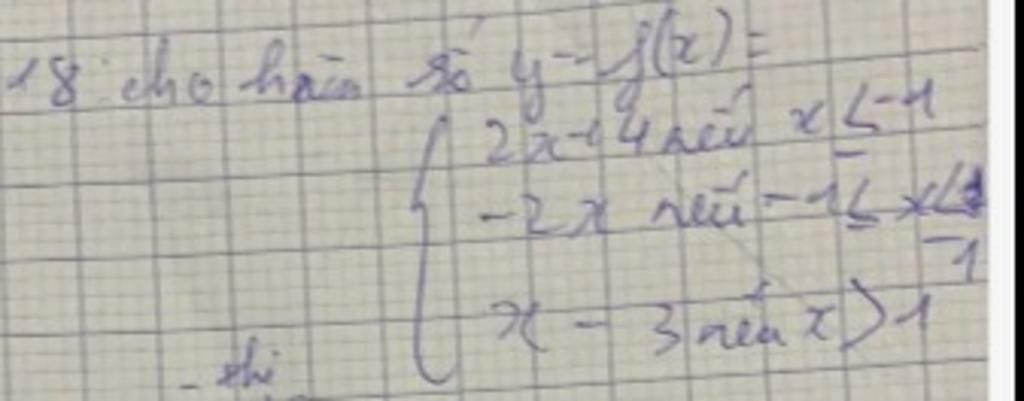 18 cho hàm số y = f(x) =
2x + 4 nếu x ≤ -1
-2x nếu -1 ≤ x ≤ 1
x - 3 nếu x > 1
- thi